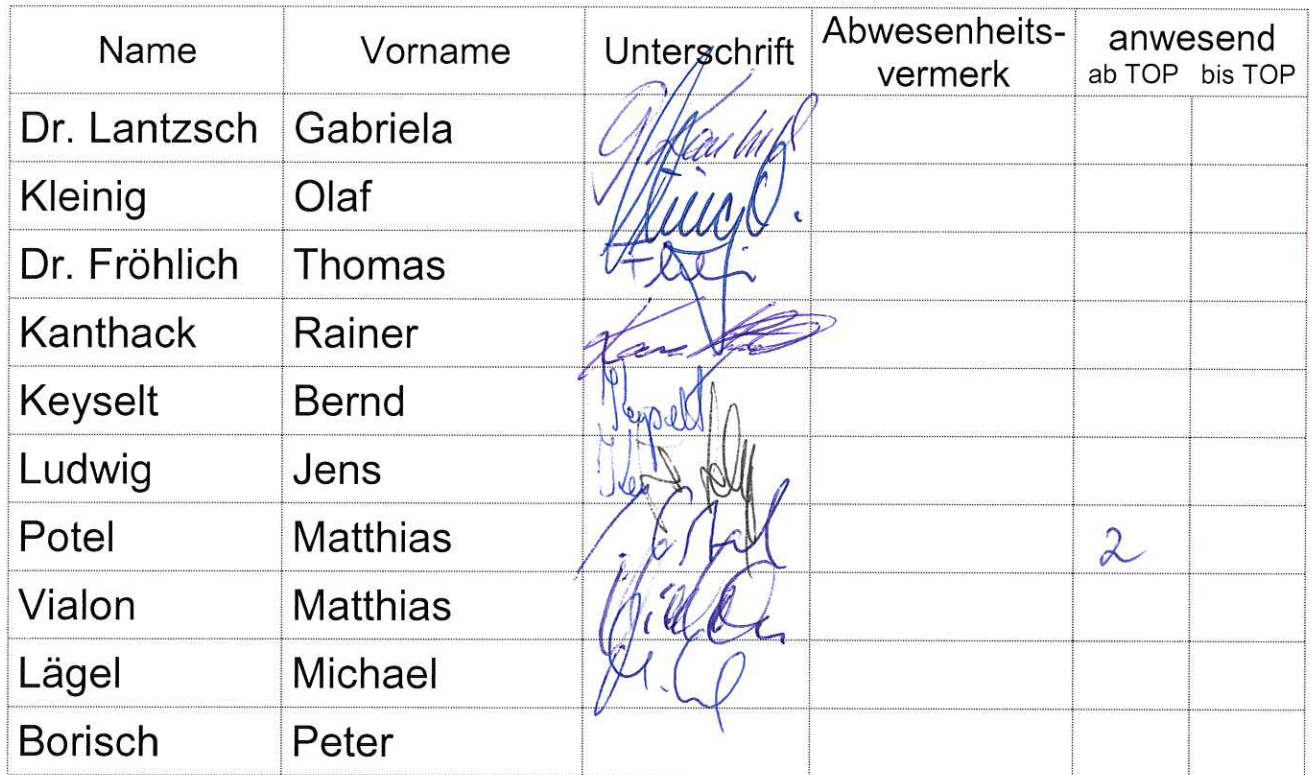 Name Vorname Unterschrift Abwesenheits- anwesend
vermerk ab TOP bis TOP
Dr. Lantzsch Gabriela
Kleinig Olaf
Dr. Fröhlich Thomas
Kanthack Rainer
Keyselt Bernd Keyselt
Ludwig Jens
Potel Matthias 2
Vialon Matthias
Lägel Michael
Borisch Peter